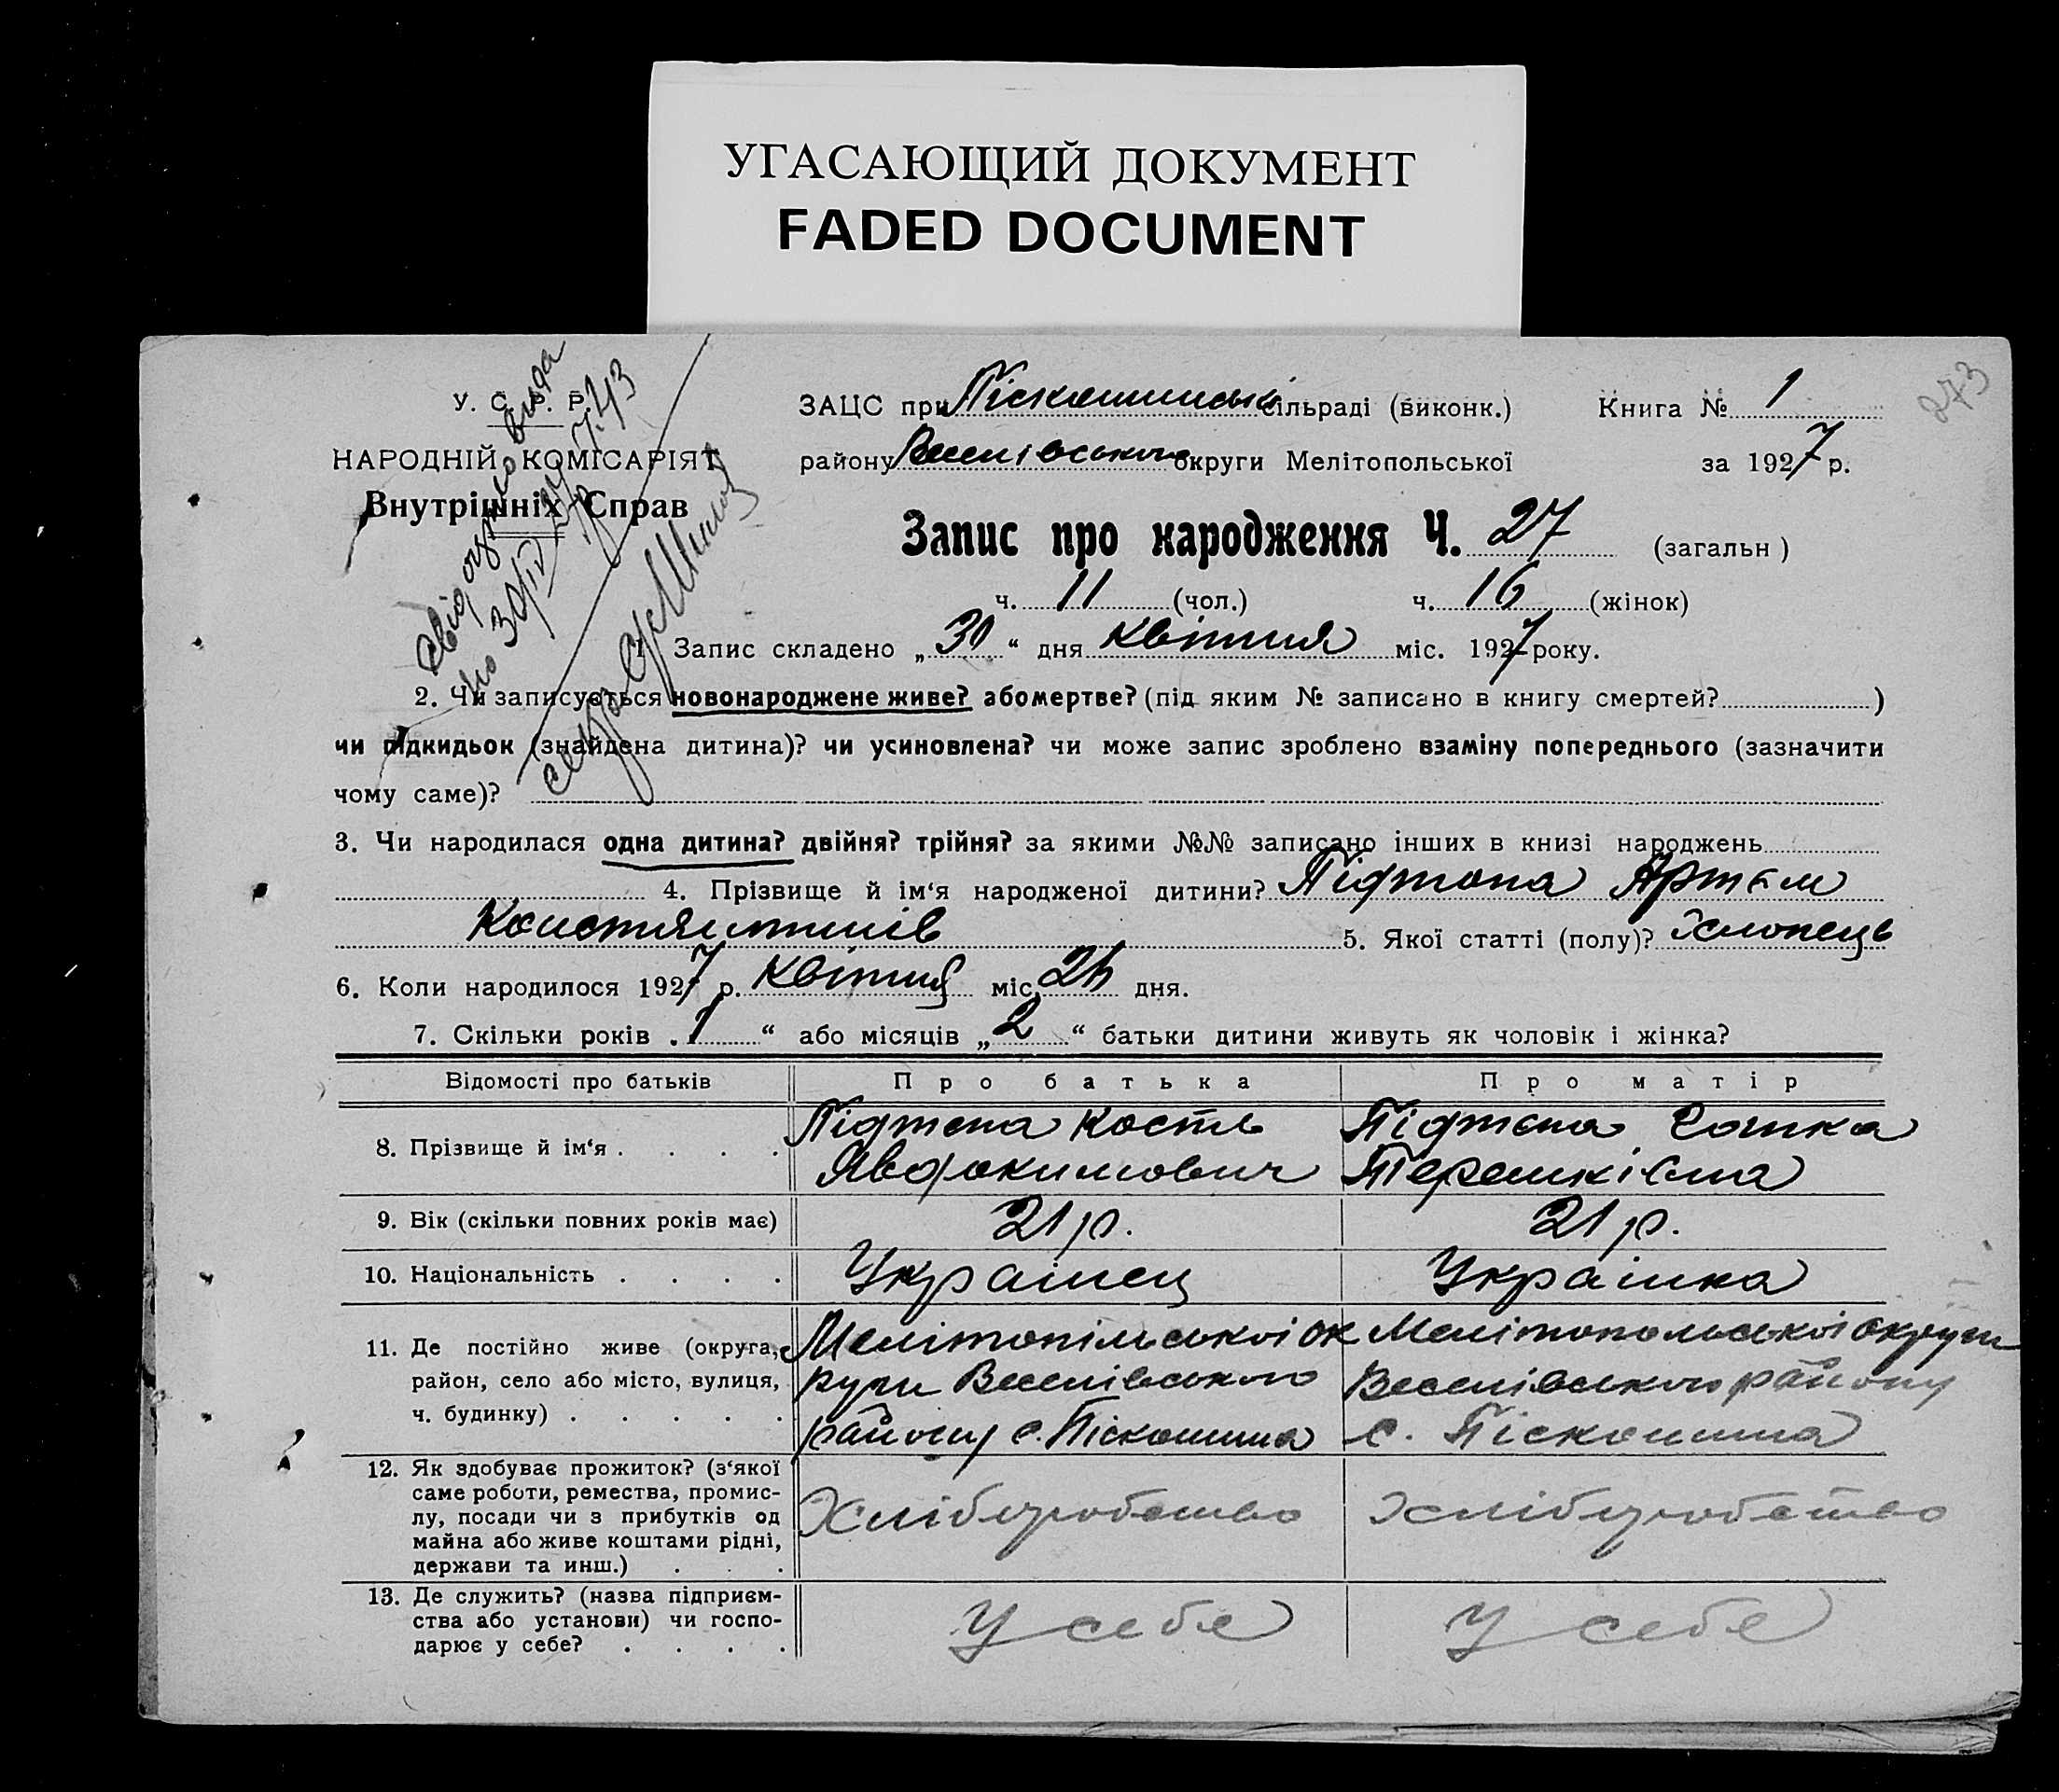 УГАСАЮЩИЙ ДОКУМЕНТ
FADED DOCUMENT
273
У. С. Р. Р.
НАРОДНІЙ КОМІСАРІЯТ
Внутрішніх Справ
ЗАЦС при Піскошинські сільраді (виконк.) Книга № 1
району Веселівського округи Мелітопольської за 1927 р.
Запис про народження Ч. 27 (загальн)
ч. 11 (чол.) ч. 16 (жінок)
1. Запис складено „30“ дня квітня міс. 1927 року.
2. Чи записується новонароджене живе? або мертве? (під яким № записано в книгу смертей? )
чи підкидьок (знайдена дитина)? чи усиновлена? чи може запис зроблено взаміну попереднього (зазначити
чому саме)?
3. Чи народилася одна дитина? двійня? трійня? за якими №№ записано інших в книзі народжень
4. Прізвище й ім‘я народженої дитини? Підтопа Артем
Костянтинів 5. Якої статті (полу)? Хлопець
6. Коли народилося 1927 р. квітня міс. дня.
7. Скільки років „1“ або місяців „2“ батьки дитини живуть як чоловік і жінка?
Відомості про батьків Про батька Про матір
8. Прізвище й ім‘я . . . . Підтопа Кость Підтопа
Явдокимович
9. Вік (скільки повних років має) 21 р. 21 р.
10. Національність . . . . Українец Українка
11. Де постійно живе (округа, Мелітопільської ок Мелітопольської округи
район, село або місто, вулиця, руги Веселівського Веселівського району
ч. будинку) . . . . . району с. Піскошина с. Піскошина
12. Як здобуває прожиток? (з‘якої
саме роботи, ремества, промис-
лу, посади чи з прибутків од Хліборобство Хліборобство
майна або живе коштами рідні,
держави та инш.) . . .
13. Де служить? (назва підприєм-
ства або установи) чи госпо- У себе У себе
дарює у себе? . . . .